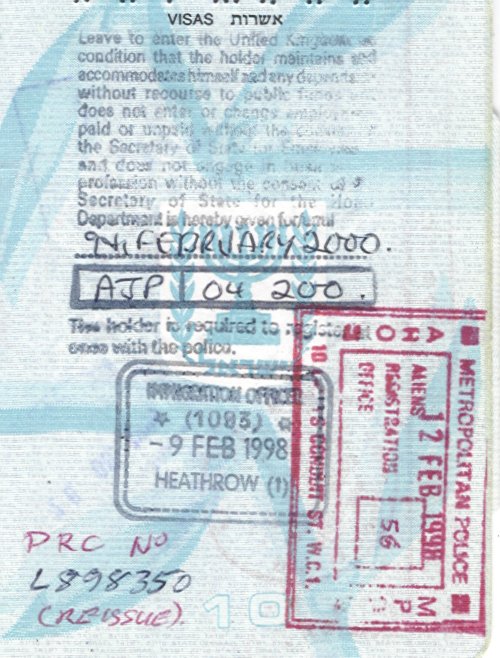 VISAS אשרות
Leave to enter the United Kingdom on
condition that the holder maintains and
accommodates himself and any dependants
without recourse to public funds
does not enter or change employment
paid or unpaid without the consent of
the Secretary of State for Employment
and does not engage in business
profession without the consent of
Secretary of State for the Home
Department is hereby given for/until
FEBRUARY 2000.
AJP 04 200.
The holder is required to register at
once with the police.
IMMIGRATION OFFICER
* (1093) *
- 9 FEB 1998
HEATHROW (1)
METROPOLITAN POLICE
ALIENS
REGISTRATION
OFFICE
12 FEB 1998
56
CONDUIT ST. W.C.1.
PRC NO
L898350
(REISSUE).
10